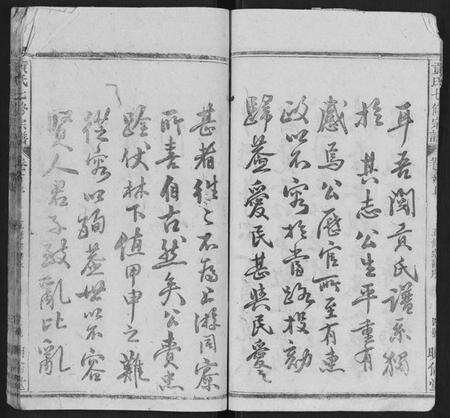 耳吾閱貢氏譜系獨
於其志公生平重有
感焉公歷官所至有惠
政以不容於當路投劾
歸蓋愛民甚與民愛〻
甚者往〻不為上游同寮
所喜自古然矣公志
伏林下值甲申之難
從容以殉蓋世以不容
賢人君子致亂比亂